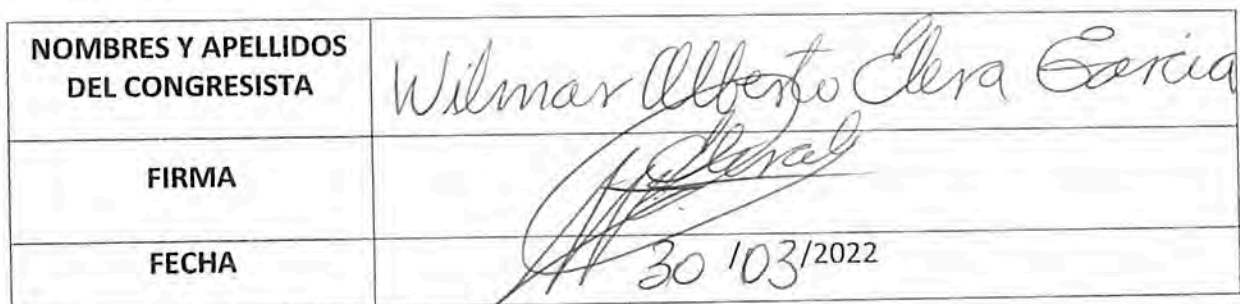 NOMBRES Y APELLIDOS
DEL CONGRESISTA
Wilmar Alberto Elera Garcia
FIRMA
FECHA
30 /03/2022